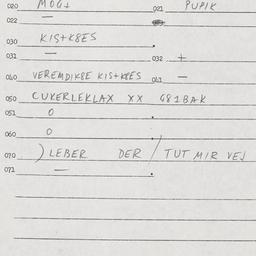 020 MOGT 021 PUPIK
022 —
030 KIS+K8ES
031 — 032 +
040 VEREMDIK8E KIS+K8ES 041 —
050 CUKERLEKLAX XX G81BAK
051 0
060 0
070 ) LEBER DER / TUT MIR VEJ
071 —